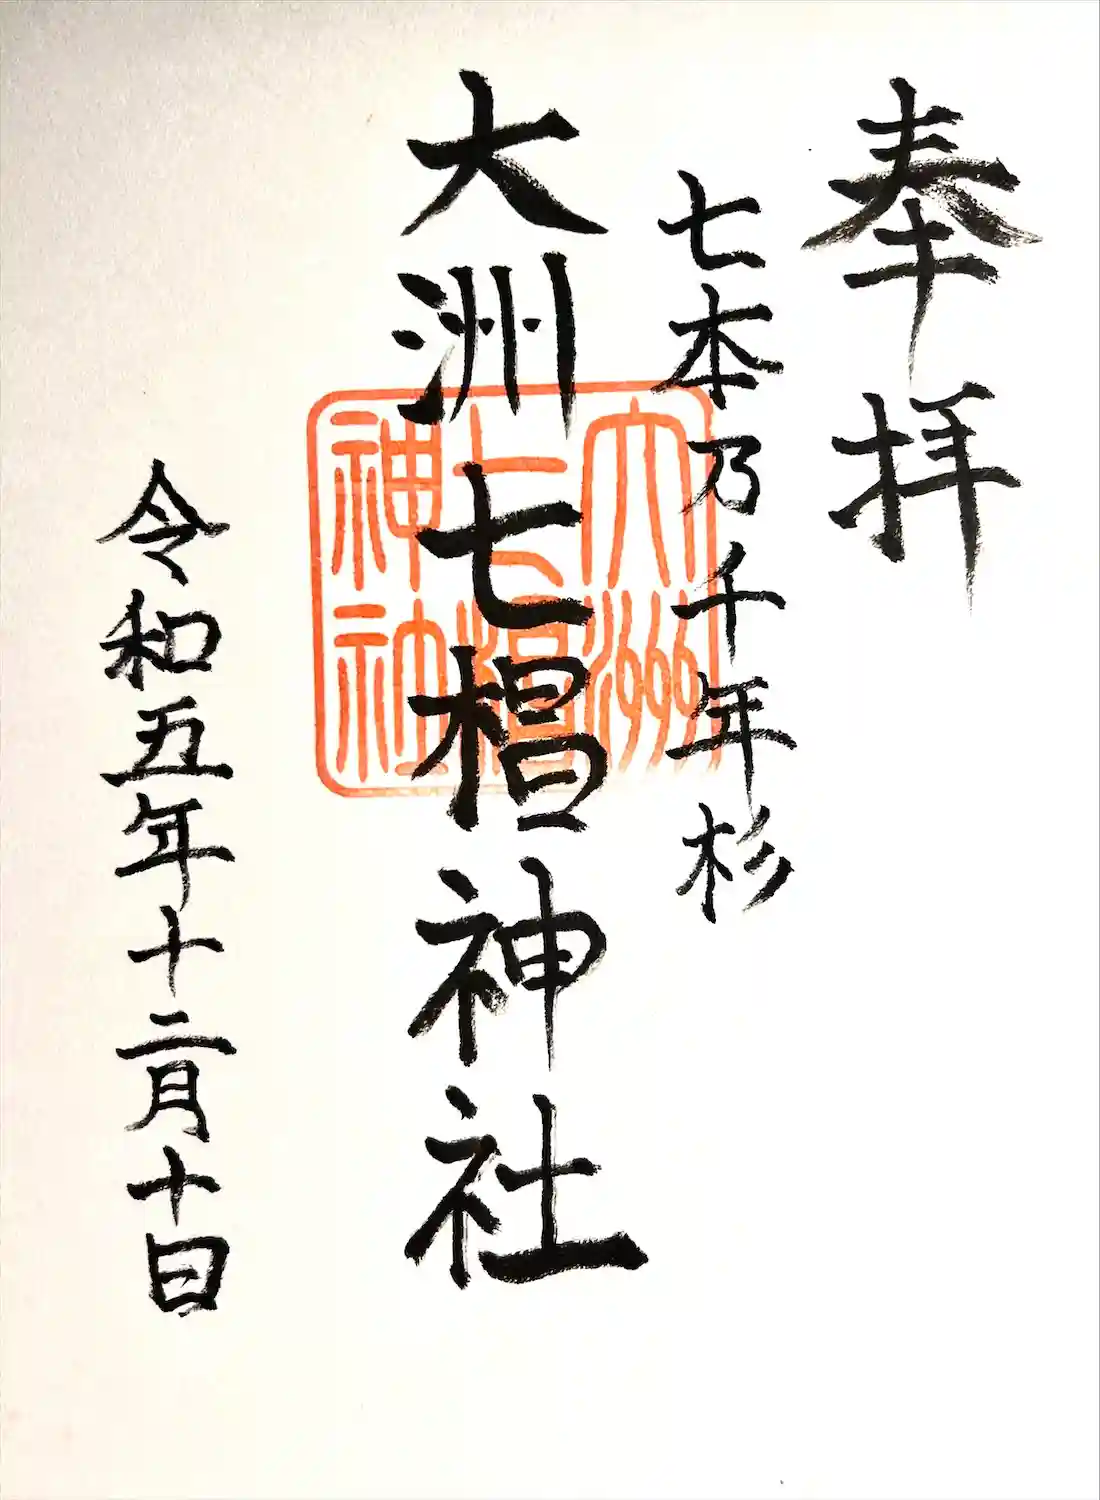 奉拝
七本乃千年杉
大洲七椙神社
大洲七椙神社
令和五年十二月十日